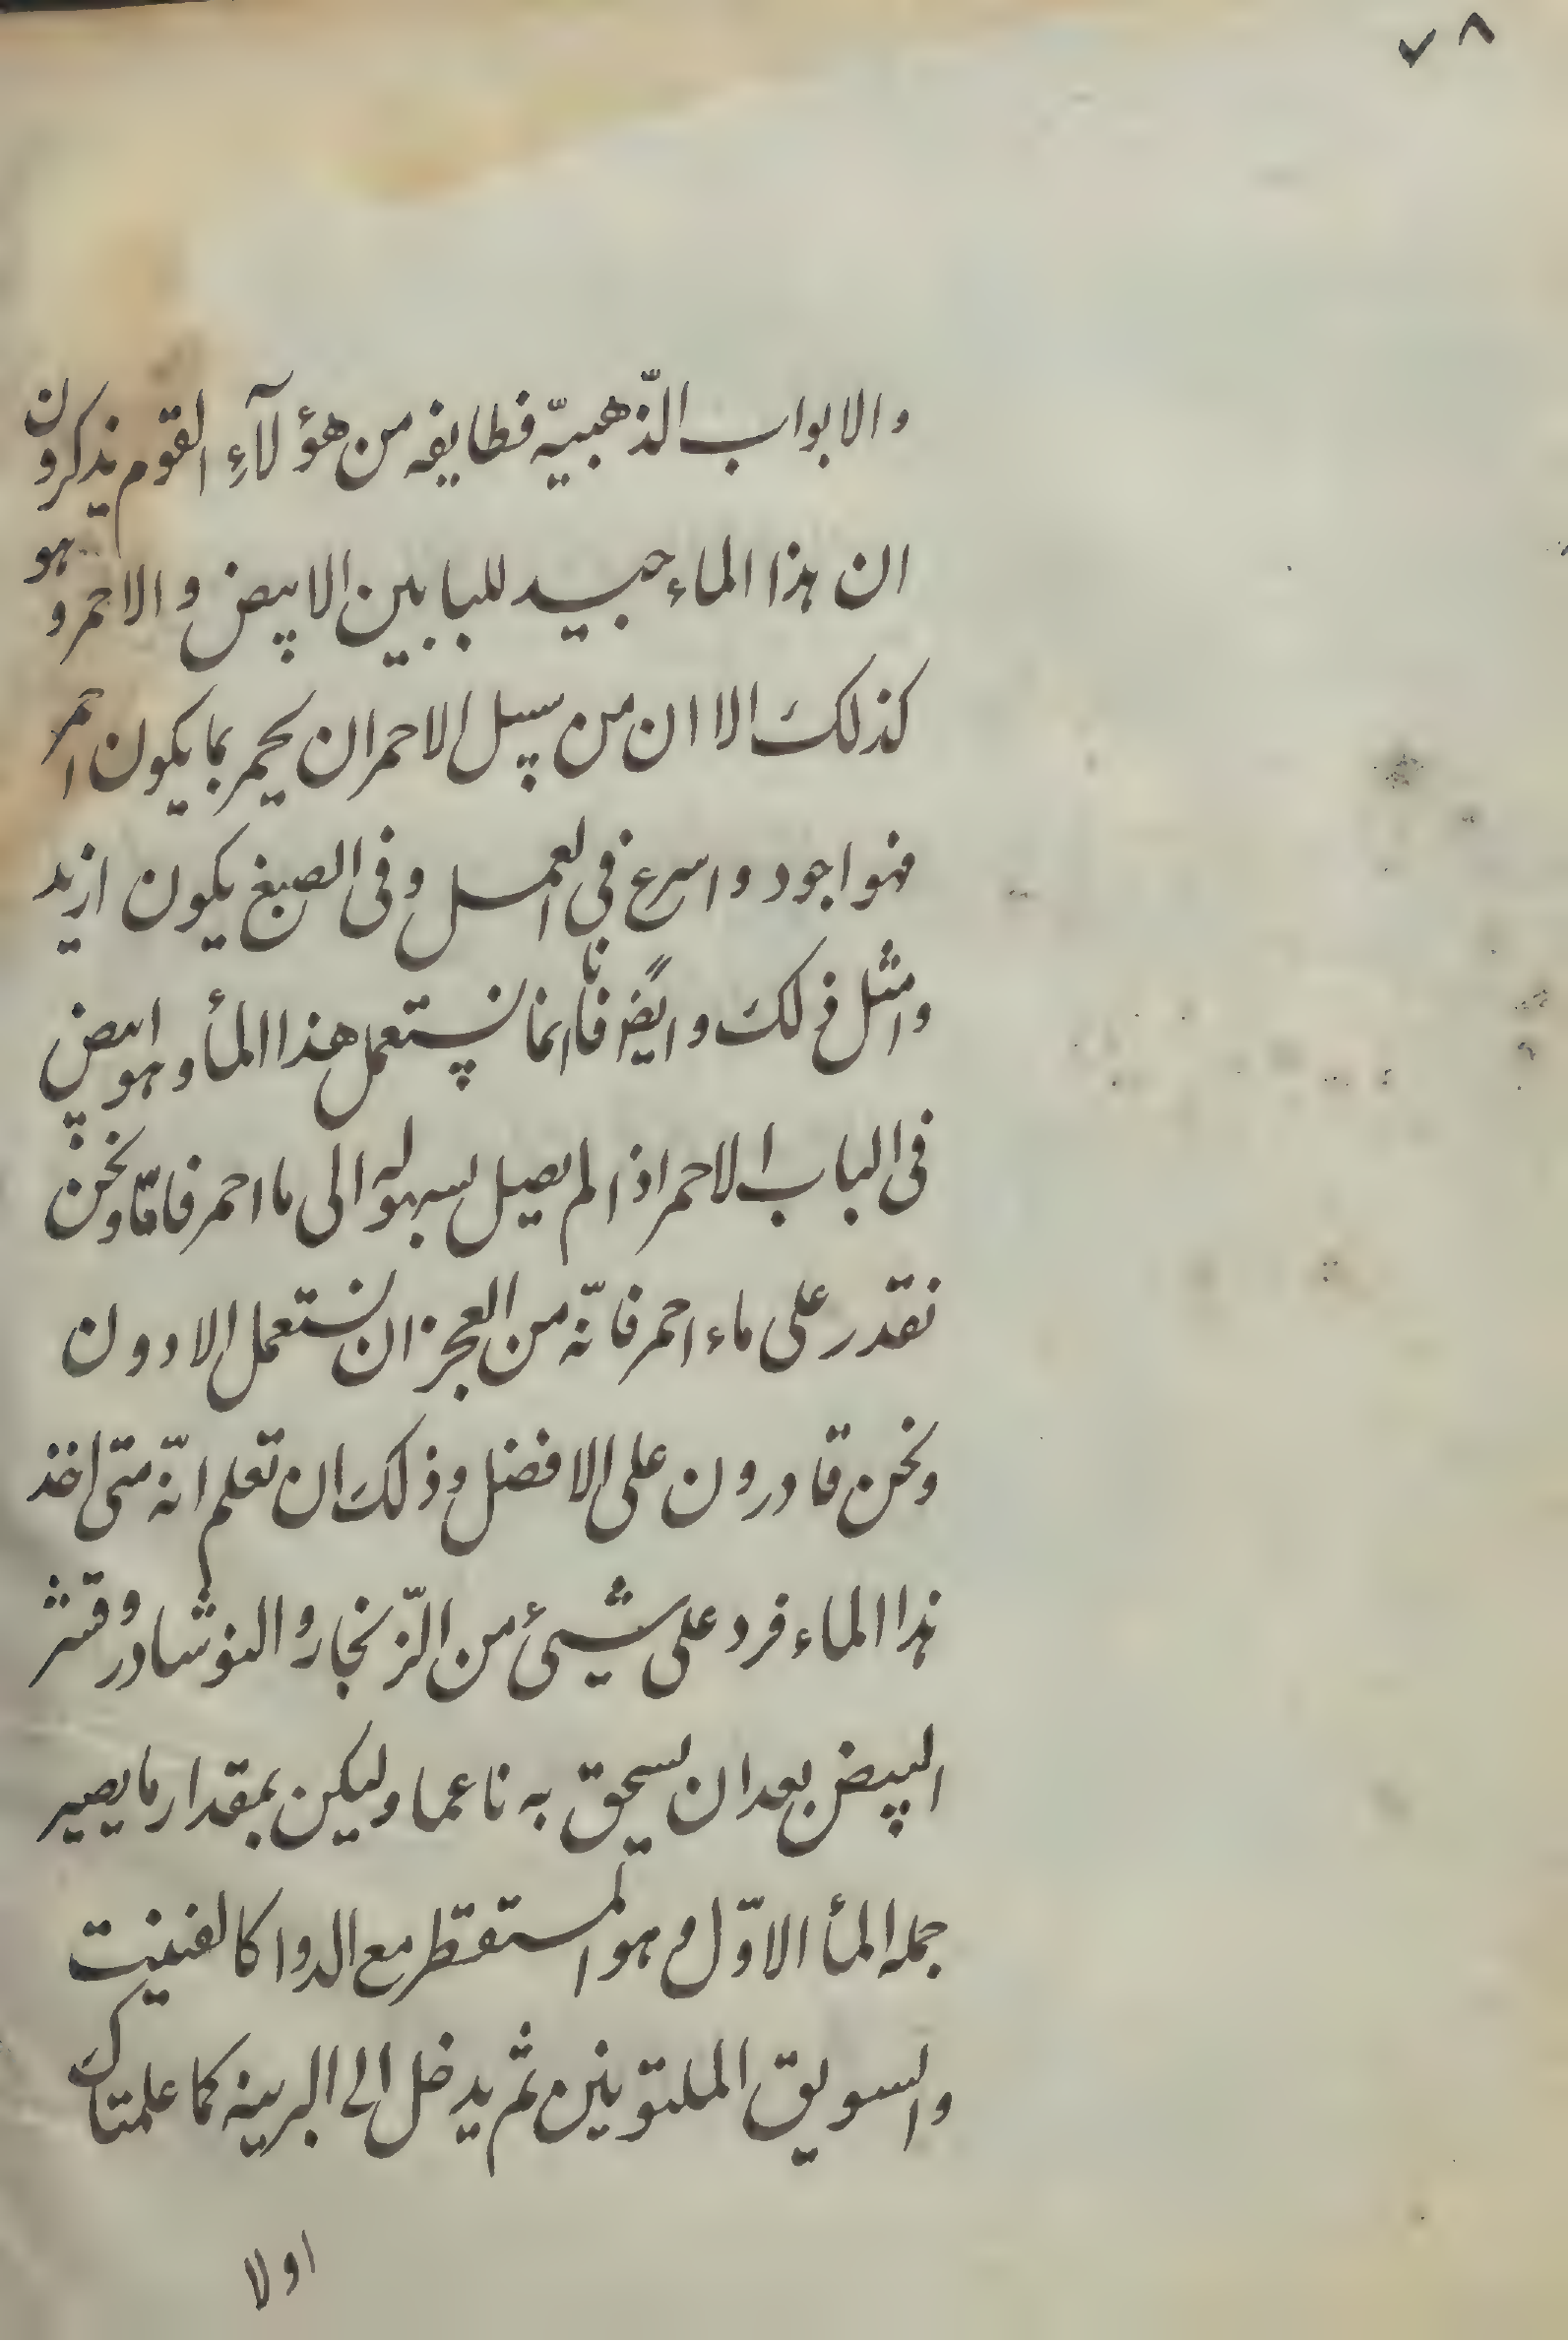 ٧٨
والابواب الذّهبيّه فطايفه من هؤلآءِ القوم يذكرون
ان هذا الماء جيد للبابين الابيض والاحمر وهو
كذلك الا ان من سبيل الاحمر ان يحمر بما يكون احمر
فهو اجود واسرع فى العمل وفى الصبغ يكون ازيد
وامثل ذلك وايضاً فانا انما نستعمل هذا المأ وهو ابيض
فى الباب الاحمر اذا لم يصل بسهوله الى ما احمر فامّا ونحن
نقدر على ماء احمر فانّه من العجز ان نستعمل الادون
ونحن قادرون على الافضل وذلك ان تعلم انّه متى اخذ
هذا الماء فرد على شيئ من الزّنجار والنوشادر وقشر
البيض بعد ان يسحق به ناعما وليكن بمقدار ما يصير
جمله المأ الاوّل وهو المستقطر مع الدوا كالفتيت
والسويق الملتوتين ثم يدخل الى البرينه كما علمتك
اولا